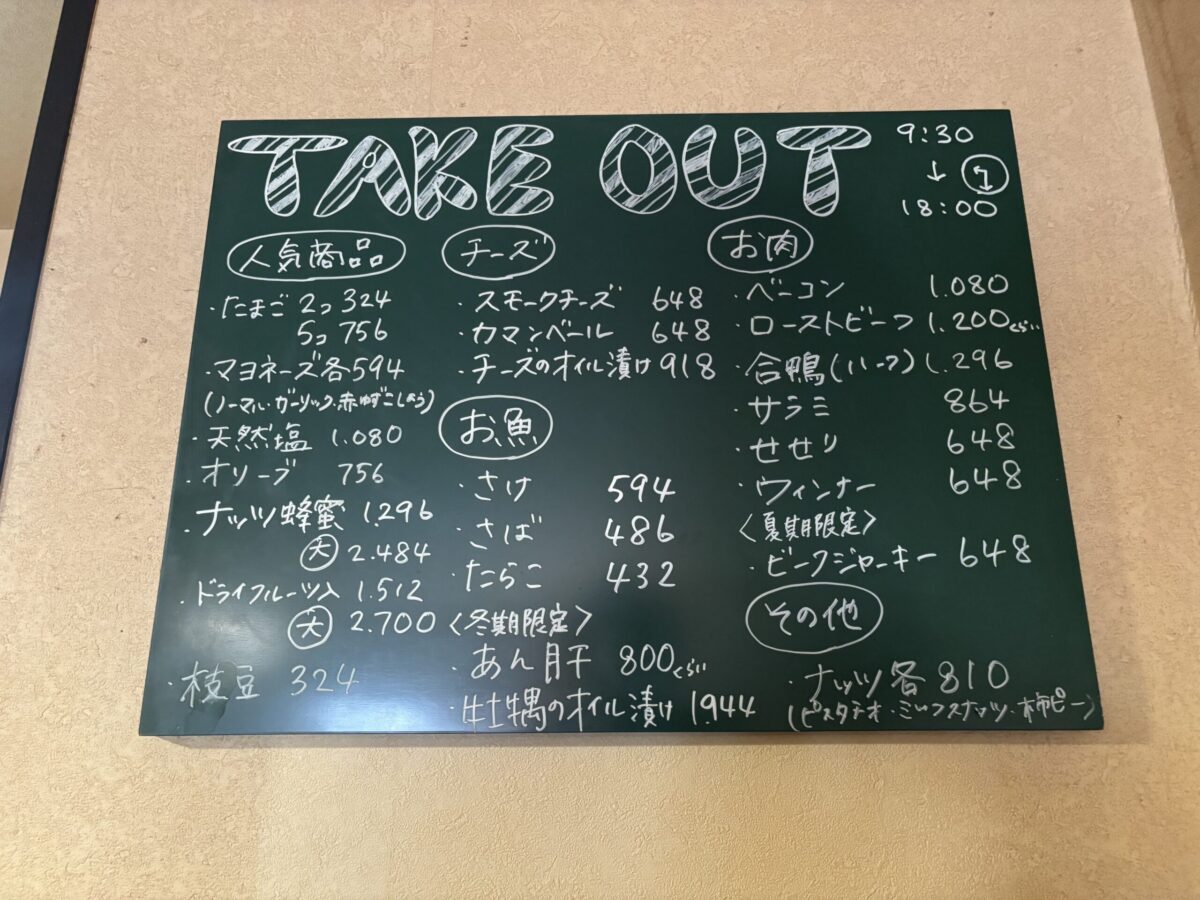 TAKE OUT
9:30
↓
18:00
人気商品
・たまご 2コ 324
5コ 756
・マヨネーズ各594
(ノーマル・ガーリック・赤ゆずこしょう)
・天然塩 1.080
・オリーブ 756
・ナッツ蜂蜜 1.296
大 2.484
・ドライフルーツ入 1.512
大 2.700
・枝豆 324
チーズ
・スモークチーズ 648
・カマンベール 648
・チーズのオイル漬け 918
お魚
・さけ 594
・さば 486
・たらこ 432
〈冬期限定〉
・あん肝 800くらい
・牡蠣のオイル漬け 1.944
お肉
・ベーコン 1.080
・ローストビーフ 1.200くらい
・合鴨(ハーフ) 1.296
・サラミ 864
・せせり 648
・ウィンナー 648
〈夏期限定〉
・ビーフジャーキー 648
その他
・ナッツ各810
(ピスタチオ・ミックスナッツ・柿ピー)